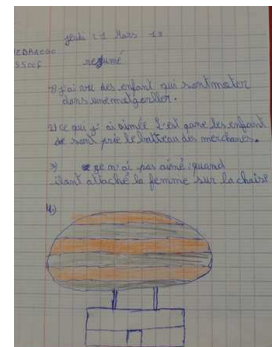 jeudi 21 Mars 19
résumé
1) j'ai vu des enfant qui sont monter
dans une malgoriller.
2) ce que j'ai aimée c'est que les enfant
se sont prie le bateau des merchants.
3) je n'ai pas aimé quand
étant attaché la femme sur la chaise
4)